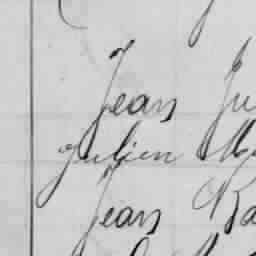 Jean Ju
Julien M
Jean Ra